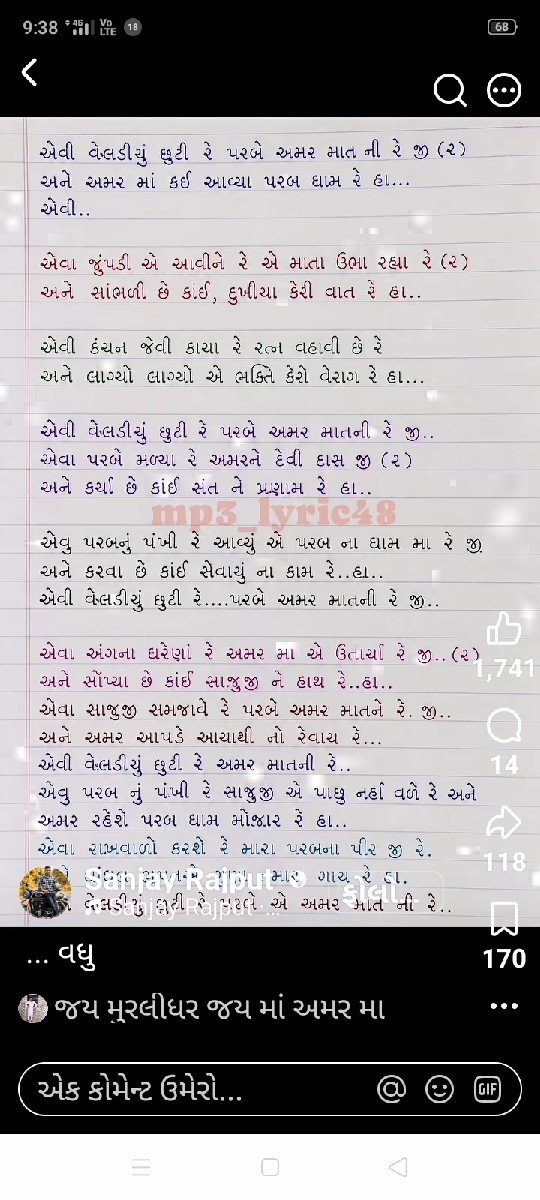 9:38 4G Vo LTE 18 68
એવી વેલડીયું છુટી રે પરબે અમર માત ની રે જી (૨)
અને અમર માં કઈ આવ્યા પરબ ધામ રે હા...
એવી..
એવા જુંપડી એ આવીને રે એ માતા ઉભા રહ્યા રે (૨)
અને સાંભળી છે કાંઈ, દુખીયા કેરી વાત રે હા...
એવી કંચન જેવી કાયા રે રત્ન વહાવી છે રે
અને લાગ્યો લાગ્યો એ ભક્તિ કેરો વેરાગ રે હા...
એવી વેલડીયું છુટી રે પરબે અમર માતની રે જી..
એવા પરબે મળ્યા રે અમરને દેવી દાસ જી (૨)
અને કર્યા છે કાંઈ સંત ને પ્રણામ રે હા..
mp3_lyric48
એવુ પરબનું પંખી રે આવ્યું એ પરબ ના ધામ મા રે જી
અને કરવા છે કાંઈ સેવાયું ના કામ રે..હા..
એવી વેલડીયું છુટી રે....પરબે અમર માતની રે જી..
એવા અંગના ઘરેણાં રે અમર મા એ ઉતાર્યા રે જી..(૨)
અને સોંપ્યા છે કાંઈ સાજુજી ને હાથ રે..હા..
એવા સાજુજી સમજાવે રે પરબે અમર માતને રે. જી..
અને અમર આપડે આયાથી નો રેવાય રે...
એવી વેલડીયું છુટી રે અમર માતની રે..
એવુ પરબ નું પંખી રે સાજુજી એ પાછુ નહીં વળે રે અને
અમર રહેશે પરબ ધામ મોજાર રે હા..
એવા રાખવાળો કરશે રે મારા પરબના પીર જી રે.
ગાય રે હા..
વેલડીયું છુટી રે પરબે એ અમર માત ની રે..
1,741
14
118
170
Sanjay Rajput
ફોલો..
Sanjay Rajput · ...
... વધુ
જય મુરલીધર જય માં અમર મા
એક કોમેન્ટ ઉમેરો...
@ GIF